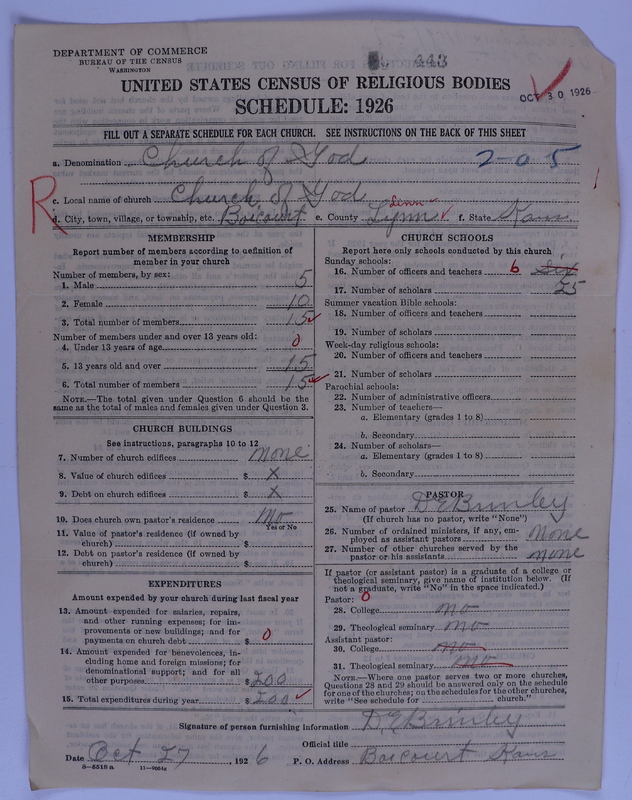 DEPARTMENT OF COMMERCE
BUREAU OF THE CENSUS
WASHINGTON
443
OCT 30 1926
UNITED STATES CENSUS OF RELIGIOUS BODIES
SCHEDULE: 1926
FILL OUT A SEPARATE SCHEDULE FOR EACH CHURCH. SEE INSTRUCTIONS ON THE BACK OF THIS SHEET
a. Denomination Church of God 2-05
c. Local name of church Church of God
R
d. City, town, village, or township, etc. Boicourt e. County Lynn Linn f. State Kans.
MEMBERSHIP
Report number of members according to definition of member in your church
Number of members, by sex:
1. Male 5
2. Female 10
3. Total number of members 15
Number of members under and over 13 years old:
4. Under 13 years of age 0
5. 13 years old and over 15
6. Total number of members 15
NOTE.—The total given under Question 6 should be the
same as the total of males and females given under Question 3.
CHURCH BUILDINGS
See instructions, paragraphs 10 to 12
7. Number of church edifices none
8. Value of church edifices $ X
9. Debt on church edifices $ X
10. Does church own pastor's residence No
Yes or No
11. Value of pastor's residence (if owned by
church) $
12. Debt on pastor's residence (if owned by
church) $
EXPENDITURES
Amount expended by your church during last fiscal year
13. Amount expended for salaries, repairs,
and other running expenses; for im-
provements or new buildings; and for
payments on church debt $ 0
14. Amount expended for benevolences, in-
cluding home and foreign missions; for
denominational support; and for all
other purposes $ 200
15. Total expenditures during year $ 200
CHURCH SCHOOLS
Report here only schools conducted by this church
Sunday schools:
16. Number of officers and teachers 6 Six
17. Number of scholars 25
Summer vacation Bible schools:
18. Number of officers and teachers
19. Number of scholars
Week-day religious schools:
20. Number of officers and teachers
21. Number of scholars
Parochial schools:
22. Number of administrative officers
23. Number of teachers—
a. Elementary (grades 1 to 8)
b. Secondary
24. Number of scholars—
a. Elementary (grades 1 to 8)
b. Secondary
PASTOR
25. Name of pastor D E Brinley
(If church has no pastor, write "None")
26. Number of ordained ministers, if any, em-
ployed as assistant pastors None
27. Number of other churches served by the
pastor or his assistants none
If pastor (or assistant pastor) is a graduate of a college or
theological seminary, give name of institution below. (If
not a graduate, write "No" in the space indicated.)
Pastor: 0
28. College no
29. Theological seminary no
Assistant pastor:
30. College no
31. Theological seminary no
NOTE.—Where one pastor serves two or more churches,
Questions 28 and 29 should be answered only on the schedule
for one of the churches; on the schedules for the other churches,
write "See schedule for church."
Signature of person furnishing information D. E Brinley
Official title
Date Oct 27, 1926 P. O. Address Boicourt Kans
8-5518a 11-9664a